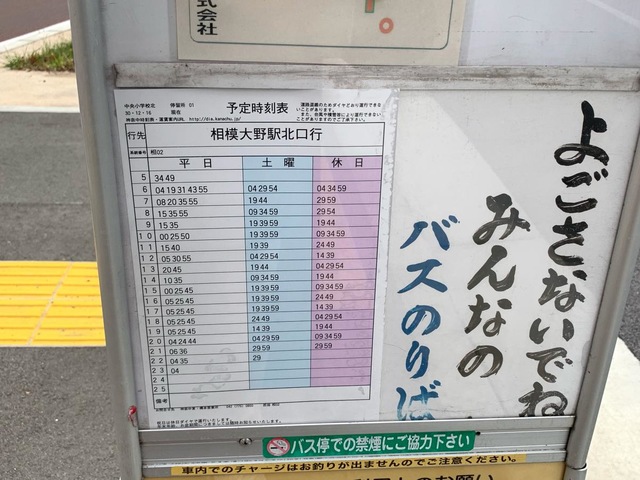 式会社
中央小学校北
停留所 01
30・12・16 現在
予定時刻表
道路混雑のためダイヤどおり運行できな
いことがあります。
また、台風や積雪等により運行できない
ことがありますのでご了承下さい。
http://dia.kanachu.jp/
行先 相模大野駅北口行
系統番号 相02
平日 土曜 休日
5 34 49
6 04 19 31 43 55 04 29 54 04 34 59
7 08 20 35 55 19 44 29 59
8 15 35 55 09 34 59 29 54
9 15 35 19 39 59 19 44
10 00 25 50 19 39 59 09 34 59
11 15 40 19 39 24 49
12 05 30 55 04 29 54 14 39
13 20 45 19 44 04 29 54
14 10 35 09 34 59 19 44
15 00 25 45 19 39 59 09 34 59
16 05 25 45 19 39 59 24 49
17 05 25 45 19 39 59 14 39
18 05 25 45 24 49 04 29 54
19 05 25 45 14 39 19 44
20 04 24 44 04 29 59 09 34 59
21 06 36 29 59 29 59
22 04 35 29
23 04
24
25
備考
よごさないでね
みんなの
バスのりば
バス停での禁煙にご協力下さい
車内でのチャージはお釣りが出ませんのでご注意ください。